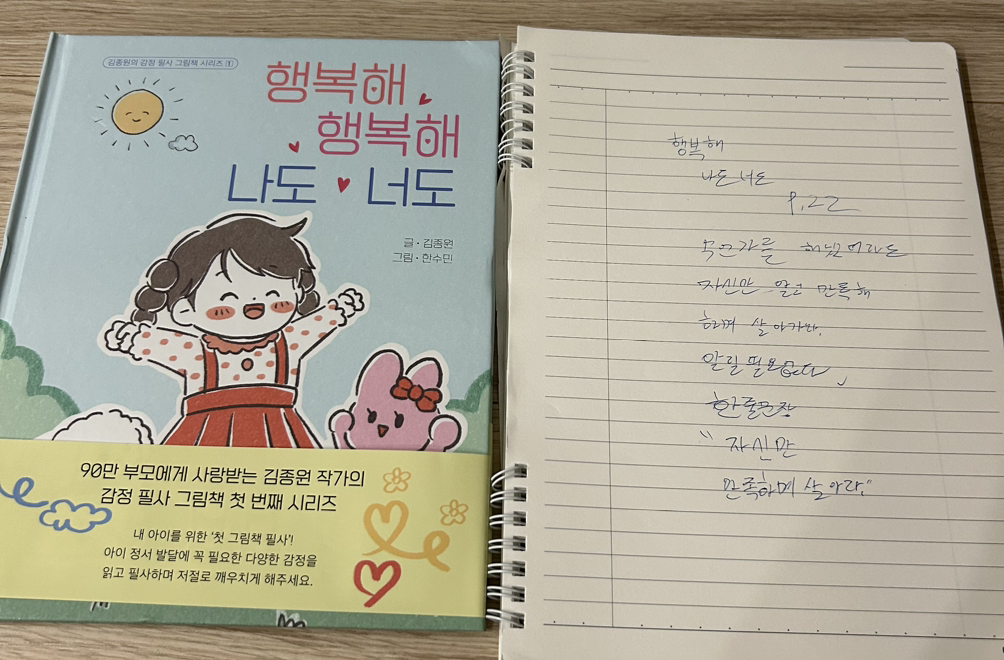 김종원의 감정 필사 그림책 시리즈 ①
행복해
행복해
나도 너도
글 · 김종원
그림 · 한수민
90만 부모에게 사랑받는 김종원 작가의
감정 필사 그림책 첫 번째 시리즈
내 아이를 위한 '첫 그림책 필사'!
아이 정서 발달에 꼭 필요한 다양한 감정을
읽고 필사하며 저절로 깨우치게 해주세요.
행복해
나도 너도
P.22
자신만 알고 만족해
하며 살아가라.
알릴 필요없다
한줄문장
"자신만
만족하며 살아라."